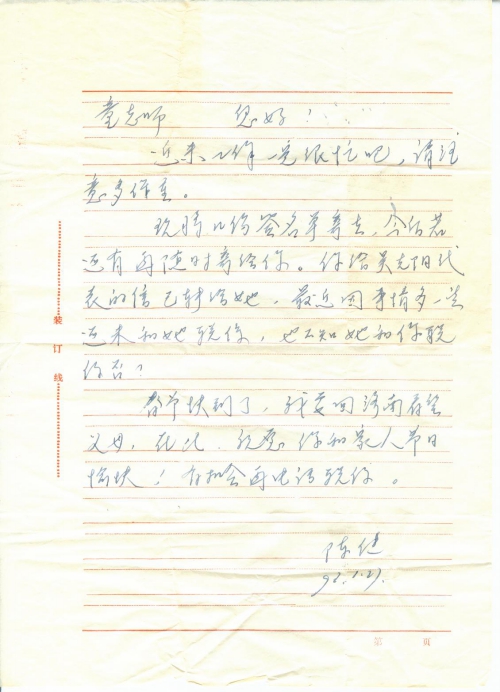 童老师 您好！
近来工作一定很忙吧，请注
意多保重。
现将几份签名单寄去，今后若
还有再随时寄给你。你给吴 阳代
表的信已转给她，最近因事情多一些
还未和她联系，也不知她和你联
系否？
春节快到了，我要回济南看望
父母，在此，祝愿你和家人节日
愉快！有机会再电话联系。
陈健
92.1.21.
装订线
第 页